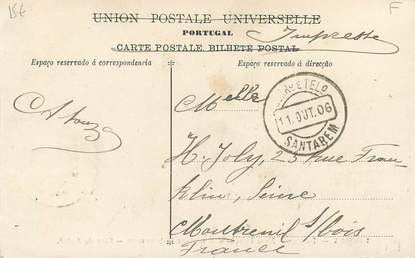 UNION POSTALE UNIVERSELLE
PORTUGAL
CARTE POSTALE. BILHETE POSTAL
Impresso
Espaço reservado á correspondencia
Espaço reservado á direcção
11.OUT.06
SANTAREM
Melle
H. Joly, 23 rue Fran-
klin, Seine
Montreuil s/Bois
France